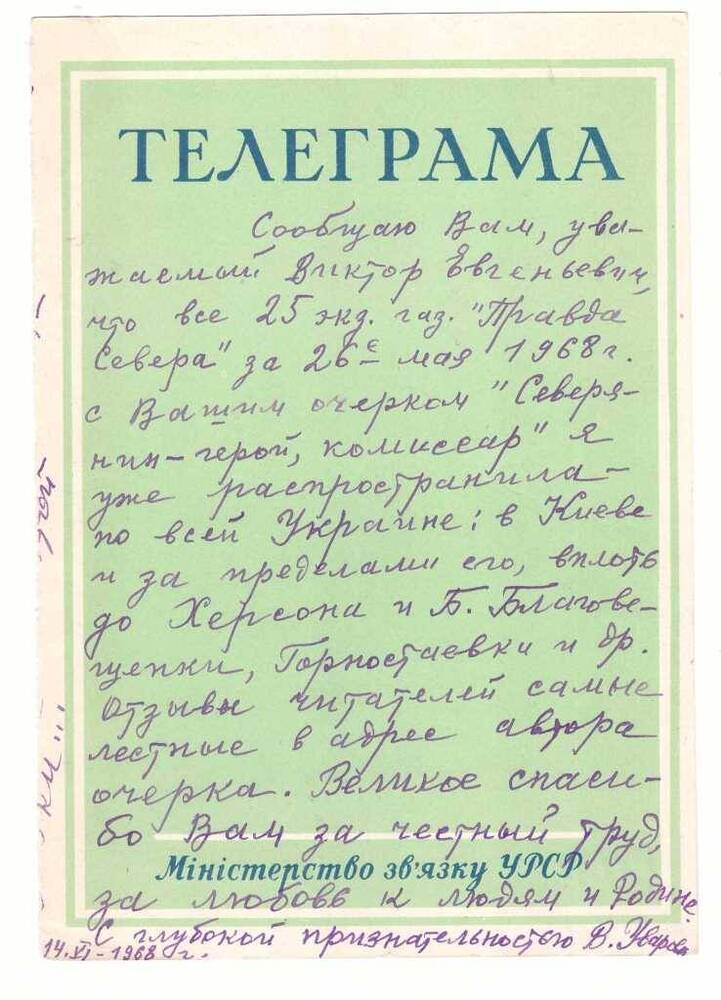 ТЕЛЕГРАМА
Сообщаю Вам, ува-
жаемый Виктор Евгеньевич,
что все 25 экз. газ. "Правда
Севера" за 26е мая 1968г.
с Вашим очерком "Северя-
нин-герой, комиссар" я
уже распространила-
по всей Украине: в Киеве
и за пределами его, вплоть
до Херсона и Б. Благове-
щенки, Горностаевки и др.
Отзывы читателей самые
лестные в адрес автора
очерка. Великое спаси-
бо Вам за честный труд,
Міністерство зв'язку УРСР
за любовь к людям и Родине.
С глубокой признательностью В. Уварова
14.XI-1968 г.